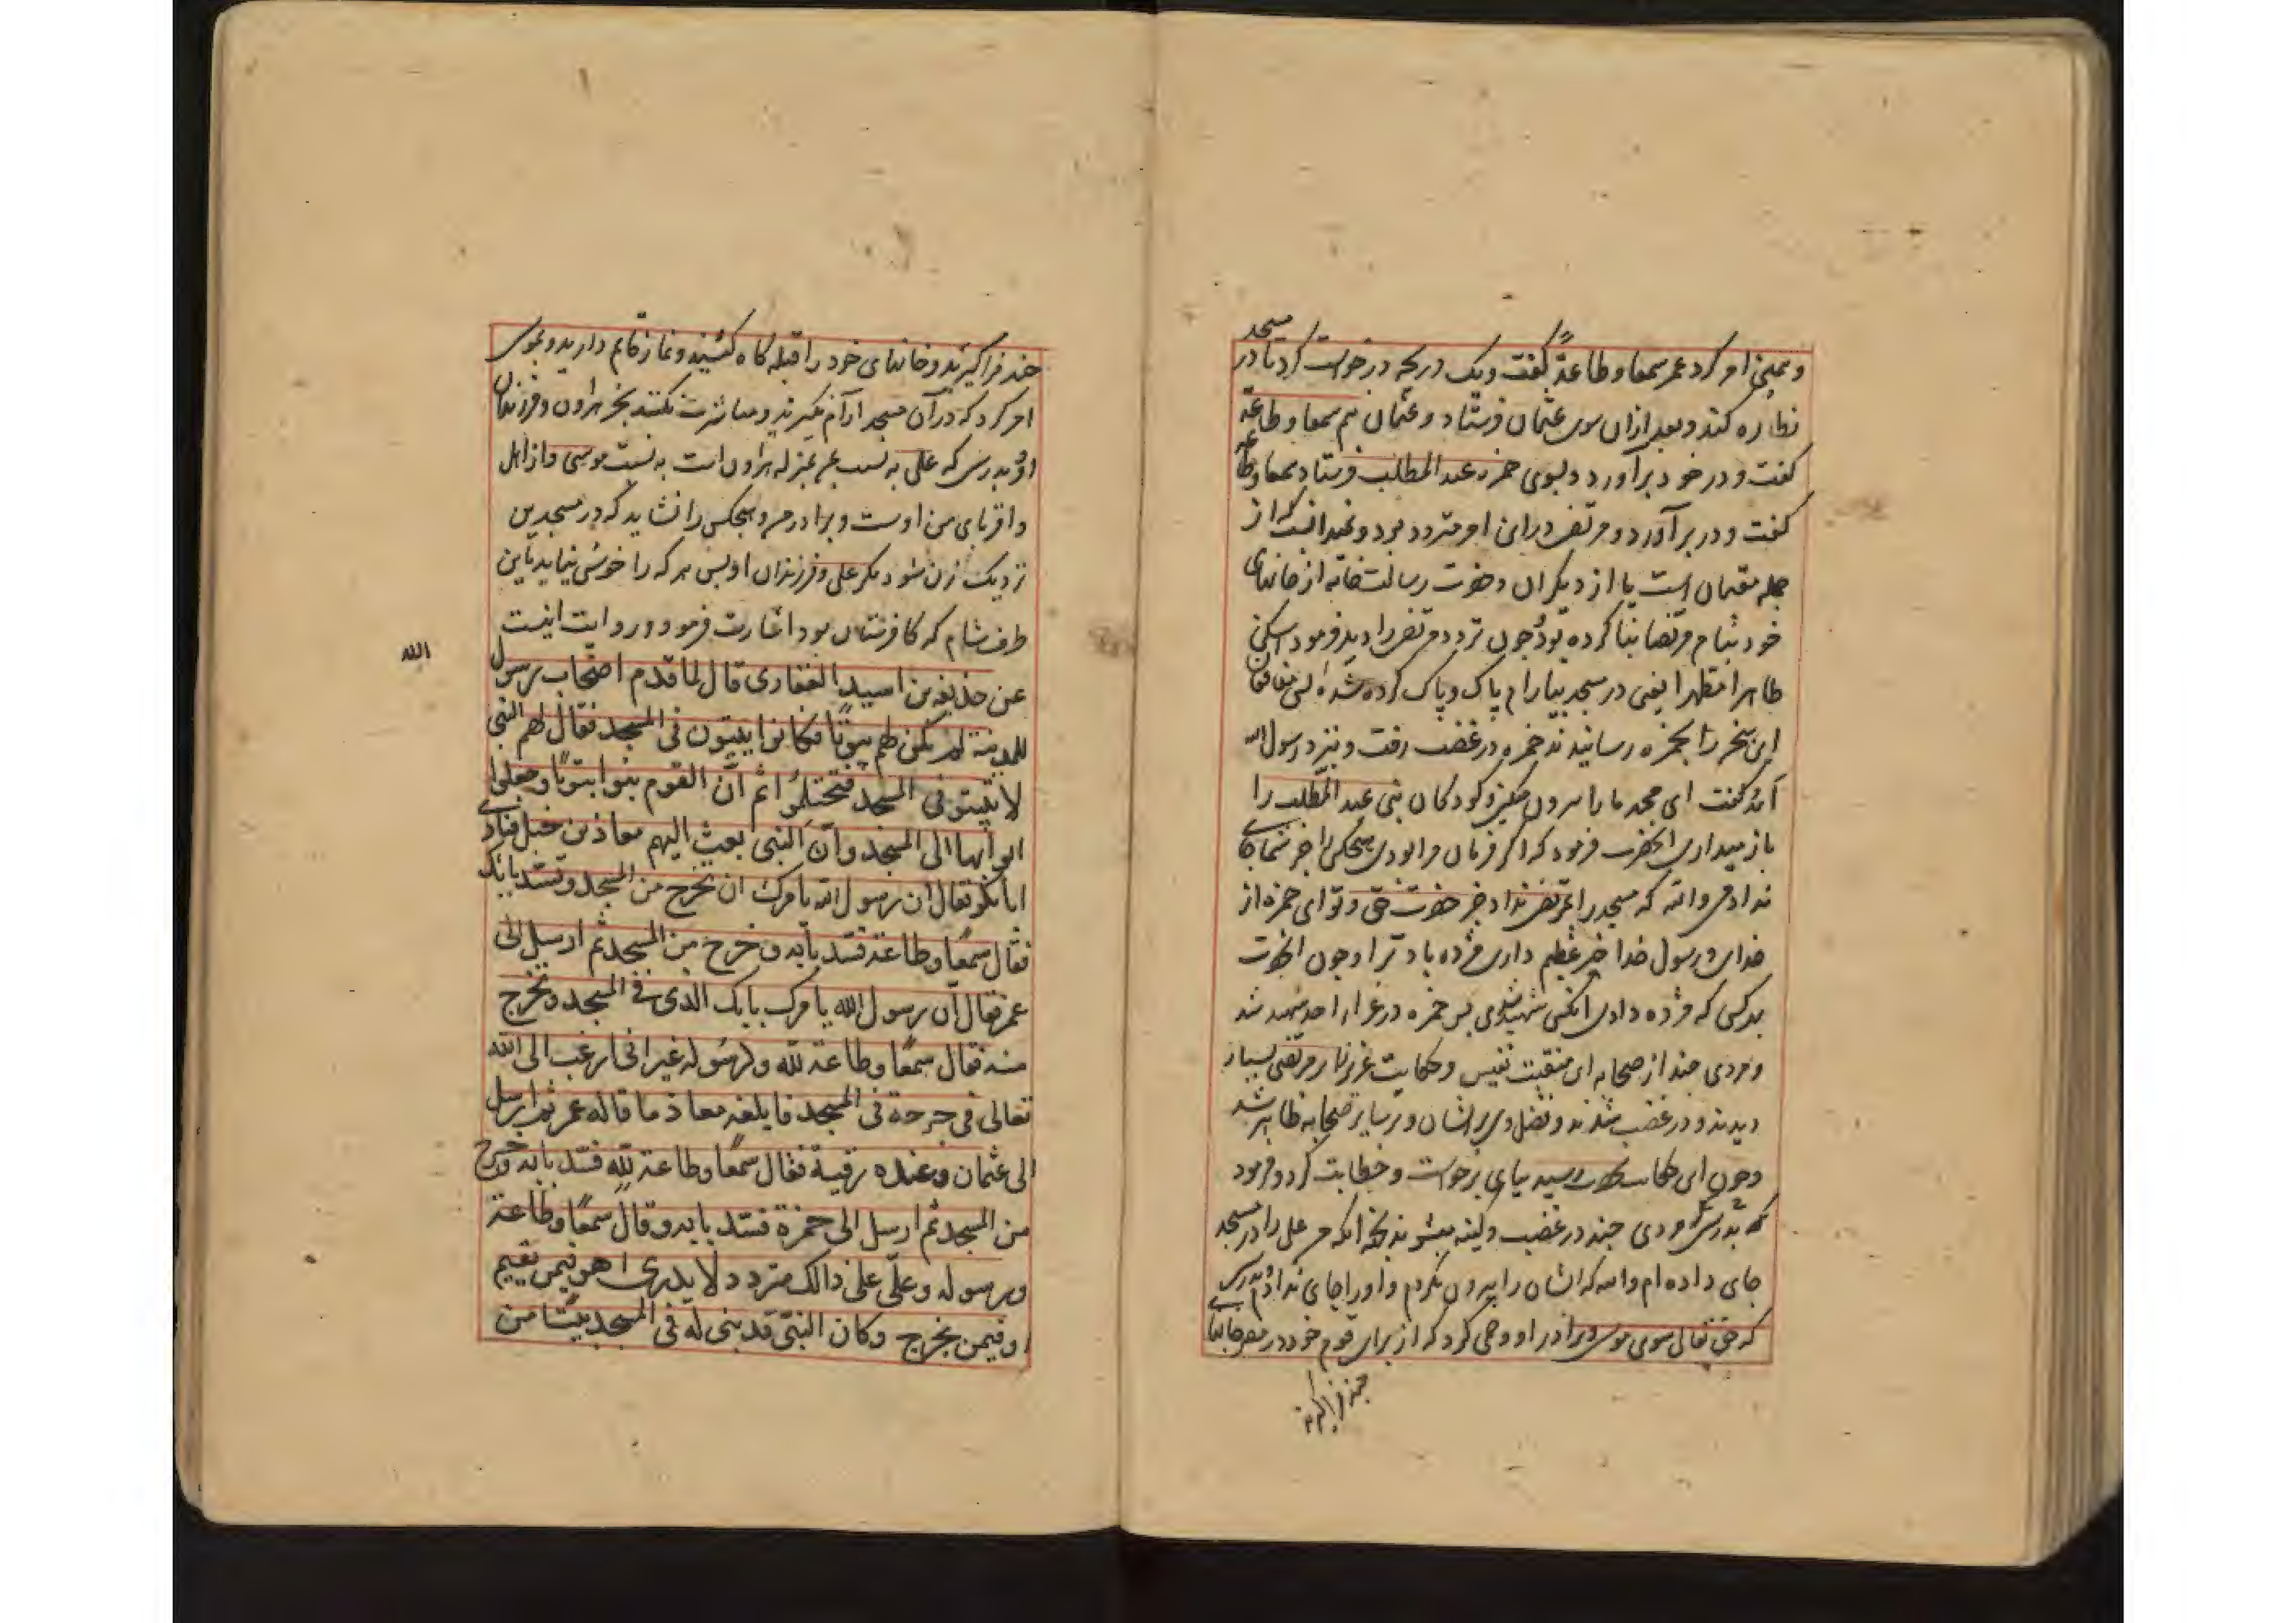 و همین امر کرد عمر سمعا و طاعة گفت و یک دریچه درخواست کرد تا در مسجد
نظاره کند و بعد ازان سوی عثمان فرستاد و عثمان هم سمعا و طاعة
گفت و در خود برآورد و بسوی حمزه عبد المطلب فرستاد سمعا و طاعة
گفت و در برآورد و مرتضی در این امر متردد بود و نمیدانست که از
جمله مقیمان است یا از دیگران و حضرت رسالت خانه از خانهای
خود بنام مرتضا بنا کرده بود چون تردد مرتضی را دید فرمود اسکن
طاهرا مطهرا یعنی در مسجد بیارام پاک و پاک کرده شده پس منافقان
این سخن را بحمزه رسانیدند حمزه در غضب رفت و بنزد رسول الله
آمد گفت ای محمد ما را بیرون میکنی و کودکان بنی عبد المطلب را
باز میداری آنحضرت فرمود که اگر فرمان مرا بودی هیچکس را جز شما جای
ندادمی والله که مسجد را بمرتضی نداد جز حضرت حق و تو ای حمزه از
خدای و رسول خدا خیر عظیم داری مژده باد ترا و چون آنحضرت
بدکسی که مژده دادی آنکس شهید شدی پس حمزه در غزاء احد شهید شد
و مردی چند از صحابه این منقبت نفیس و حکایت عزیز از مرتضی بسیار
دیدند و در غضب شدند و فضل وی بر ایشان و بر سایر صحابه ظاهر شد
و چون این حکایت بحضرت رسید بپای برخواست و خطابت کرد و فرمود
که بدرستی که مردی چند در غضب و کینه میشوند بجهة آنکه من علی را در مسجد
جای داده ام والله که ایشان را بیرون نکردم و او را جای ندادم بدرستی
که حق تعالی سوی موسی و برادر او وحی کرد که از برای قوم خود در مصر خانها
چند فراگیرند
چند فراگیرند و خانهای خود را قبله گاه کنند و نماز قایم دارید و موسی
امر کرد که در آن مسجد آرام نگیرند و مباشرت نکنند بجز هرون و فرزندان
او و بدرستی که علی به نسبت من بمنزله هرون است به نسبت موسی و از اهل
و اقربای من اوست و برادر من و هیچکس را نشاید که در مسجد من
نزدیک زن شود مگر علی و فرزندان او پس هر که را خوش نیاید باین
طرف شام که کافرستان بود اشارت فرمود و روایت اینست
عن حذیفه بن اسید الغفاری قال لما قدم اصحاب رسول
الله
للمدینة لم یکن لهم بیوتا فکانوا یبیتون فی المسجد فقال لهم النبی
لا تبیتو فی المسجد فتحتلموا ثم ان القوم بنوا بیوتا و جعلوا
ابوابها الی المسجد و ان النبی بعث الیهم معاذ بن جبل فنادی
ابا بکر فقال ان رسول الله یامرک ان تخرج من المسجد و تسد بابک
فقال سمعا و طاعة فسد بابه و خرج من المسجد ثم ارسل الی
عمر فقال ان رسول الله یامرک بابک الذی فی المسجد و تخرج
منه فقال سمعا و طاعة لله و لرسوله غیر انی ارغب الی الله
تعالی فی خرجة فی المسجد فابلغه معاذ ما قاله عمر ثم ارسل
الی عثمان و عنده رقیة فقال سمعا و طاعة لله فسد بابه و خرج
من المسجد ثم ارسل الی حمزة فسد بابه و قال سمعا و طاعة
و رسوله و علی علی ذالک متردد لا یدری اهو فیمن یقیم
او فیمن یخرج و کان النبی قد بنی له فی المسجد بیتا من